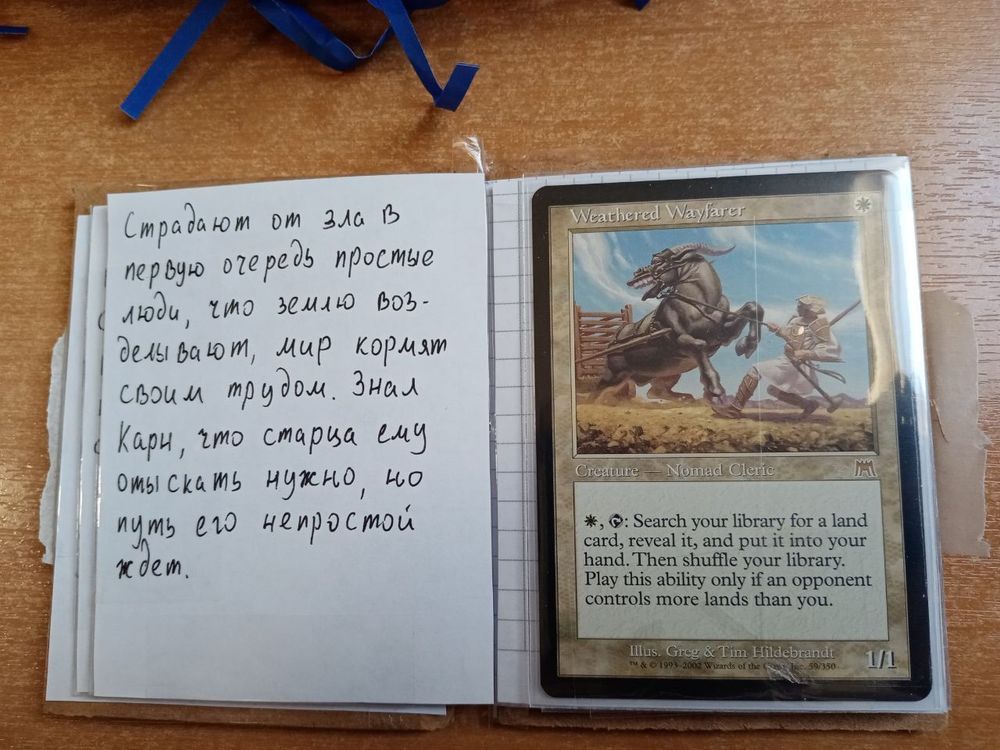 Страдают от зла в
первую очередь простые
люди, что землю воз-
делывают, мир кормят
своим трудом. Знал
Карн, что старца ему
отыскать нужно, но
путь его непростой
ждет.
Weathered Wayfarer
Creature — Nomad Cleric
: Search your library for a land
card, reveal it, and put it into your
hand. Then shuffle your library.
Play this ability only if an opponent
controls more lands than you.
Illus. Greg & Tim Hildebrandt
™ & © 1993–2002 Wizards of the Coast, Inc. 59/350
1/1